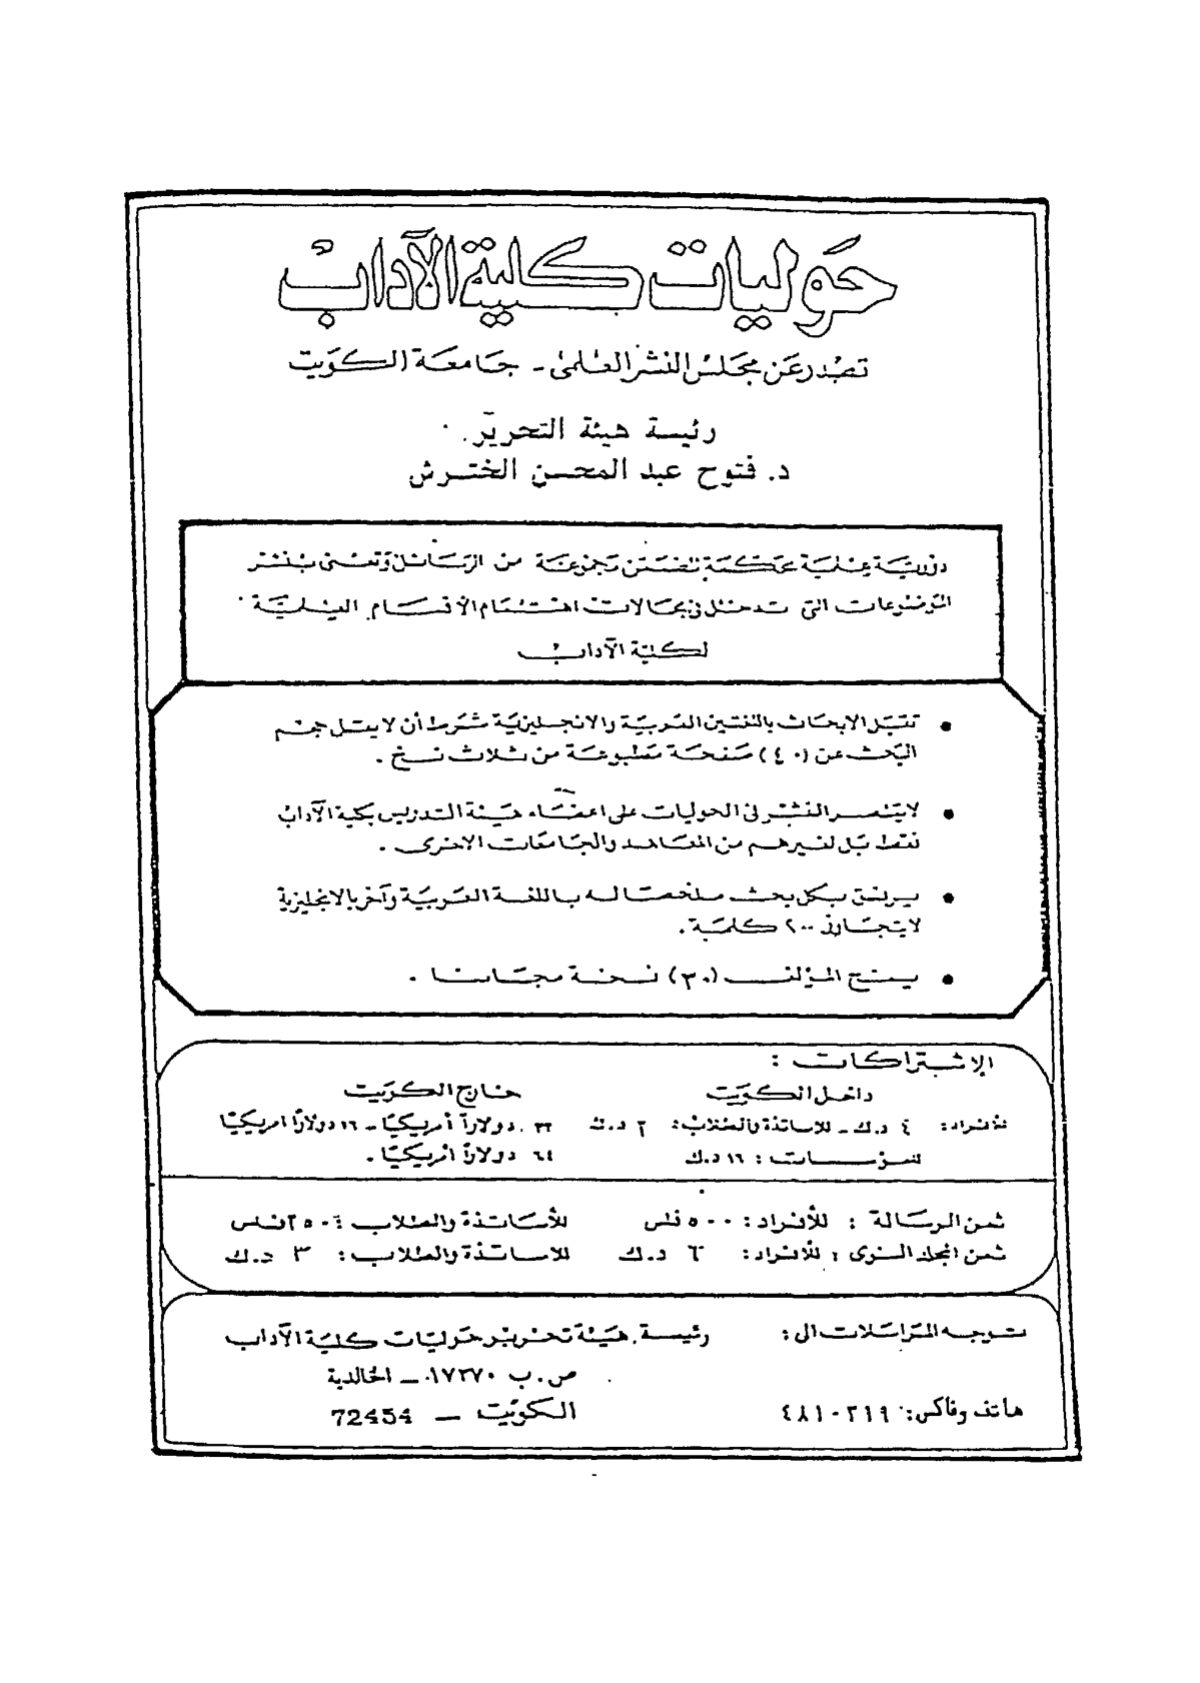 حَوليات كلية الآداب
تصْدر عَن مجَلسُ النشر العلمى - جَامعَة الكوَيت
رئيسة هيئة التحرير
د. فتوح عبد المحسن الخترش
دَوريَّة عِلميَّة محكمَة تتضمَّن مجَموعَة من الرسَائل وَتعنى بنشر
الموَضوعات التى تدخل فى مجَالات اهتمَام الأقسَام العلميَّة
لكليَّة الآدابْ
• تقبَل الابحَاث باللغتَين العَربيَّة والانجليزيَّة شرَط أن لا يقل حجم
البَحث عن (٤٠) صَفحَة مَطبوعَة من ثلاث نسخ .
• لا يقتصر النشر فى الحوليات على اعضَاء هيئة التدريس بكلية الآدابْ
فقط بَل لغيرهم من المعَاهد والجامعَات الاخرى .
• يرفق بكل بحث ملخصًا له باللغة العَربيَّة وآخر بالانجليزية
لا يتجَاوز ٢٠٠ كلمَة .
• يمنح المؤلف (٣٠) نسخة مجَانا .
الإشتراكات :
داخل الكوَيت خارج الكوَيت
للأفراد: ٤ د.ك - للاساتذة والطلابْ: ٢ د.ك ٢٢ دولارًا أمريكيًا - ١٦ دولارًا امريكيًا
للمؤسسات : ١٦ د.ك ٦٤ دولارًا أمريكيًا .
ثمن الرسَالة : للأفراد: ٥٠٠ فلس للأسَاتذة والطلاب : ٢٥٠ فلس
ثمن المجلد السنوى : للأفراد: ٦ د.ك للاساتذة والطلاب: ٣ د.ك
توجه المرَاسَلات الى: رئيسة هيَئة تحرير حَوليَات كليَة الآداب
ص.ب ١٧٣٧٠ - الخالدية
هاتف وفاكس: ٤٨١٠٣١٩ الكوَيت - 72454